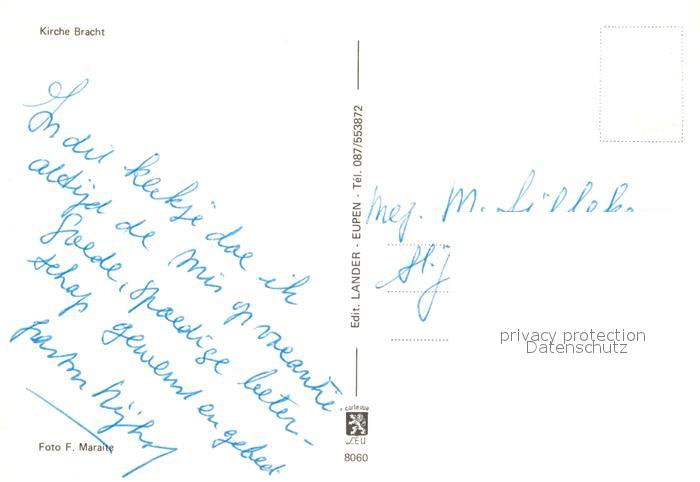 Kirche Bracht
In dit kerkje doe ik
altijd de mis op vacantie.
Goede, spoedige beter-
schap gewenst en gebed
pastor Nijhof
Foto F. Maraite
Edit. LANDER - EUPEN - Tél. 087/553872
carte vue
LEU
8060
Mej. M.
St. J
privacy protection
Datenschutz